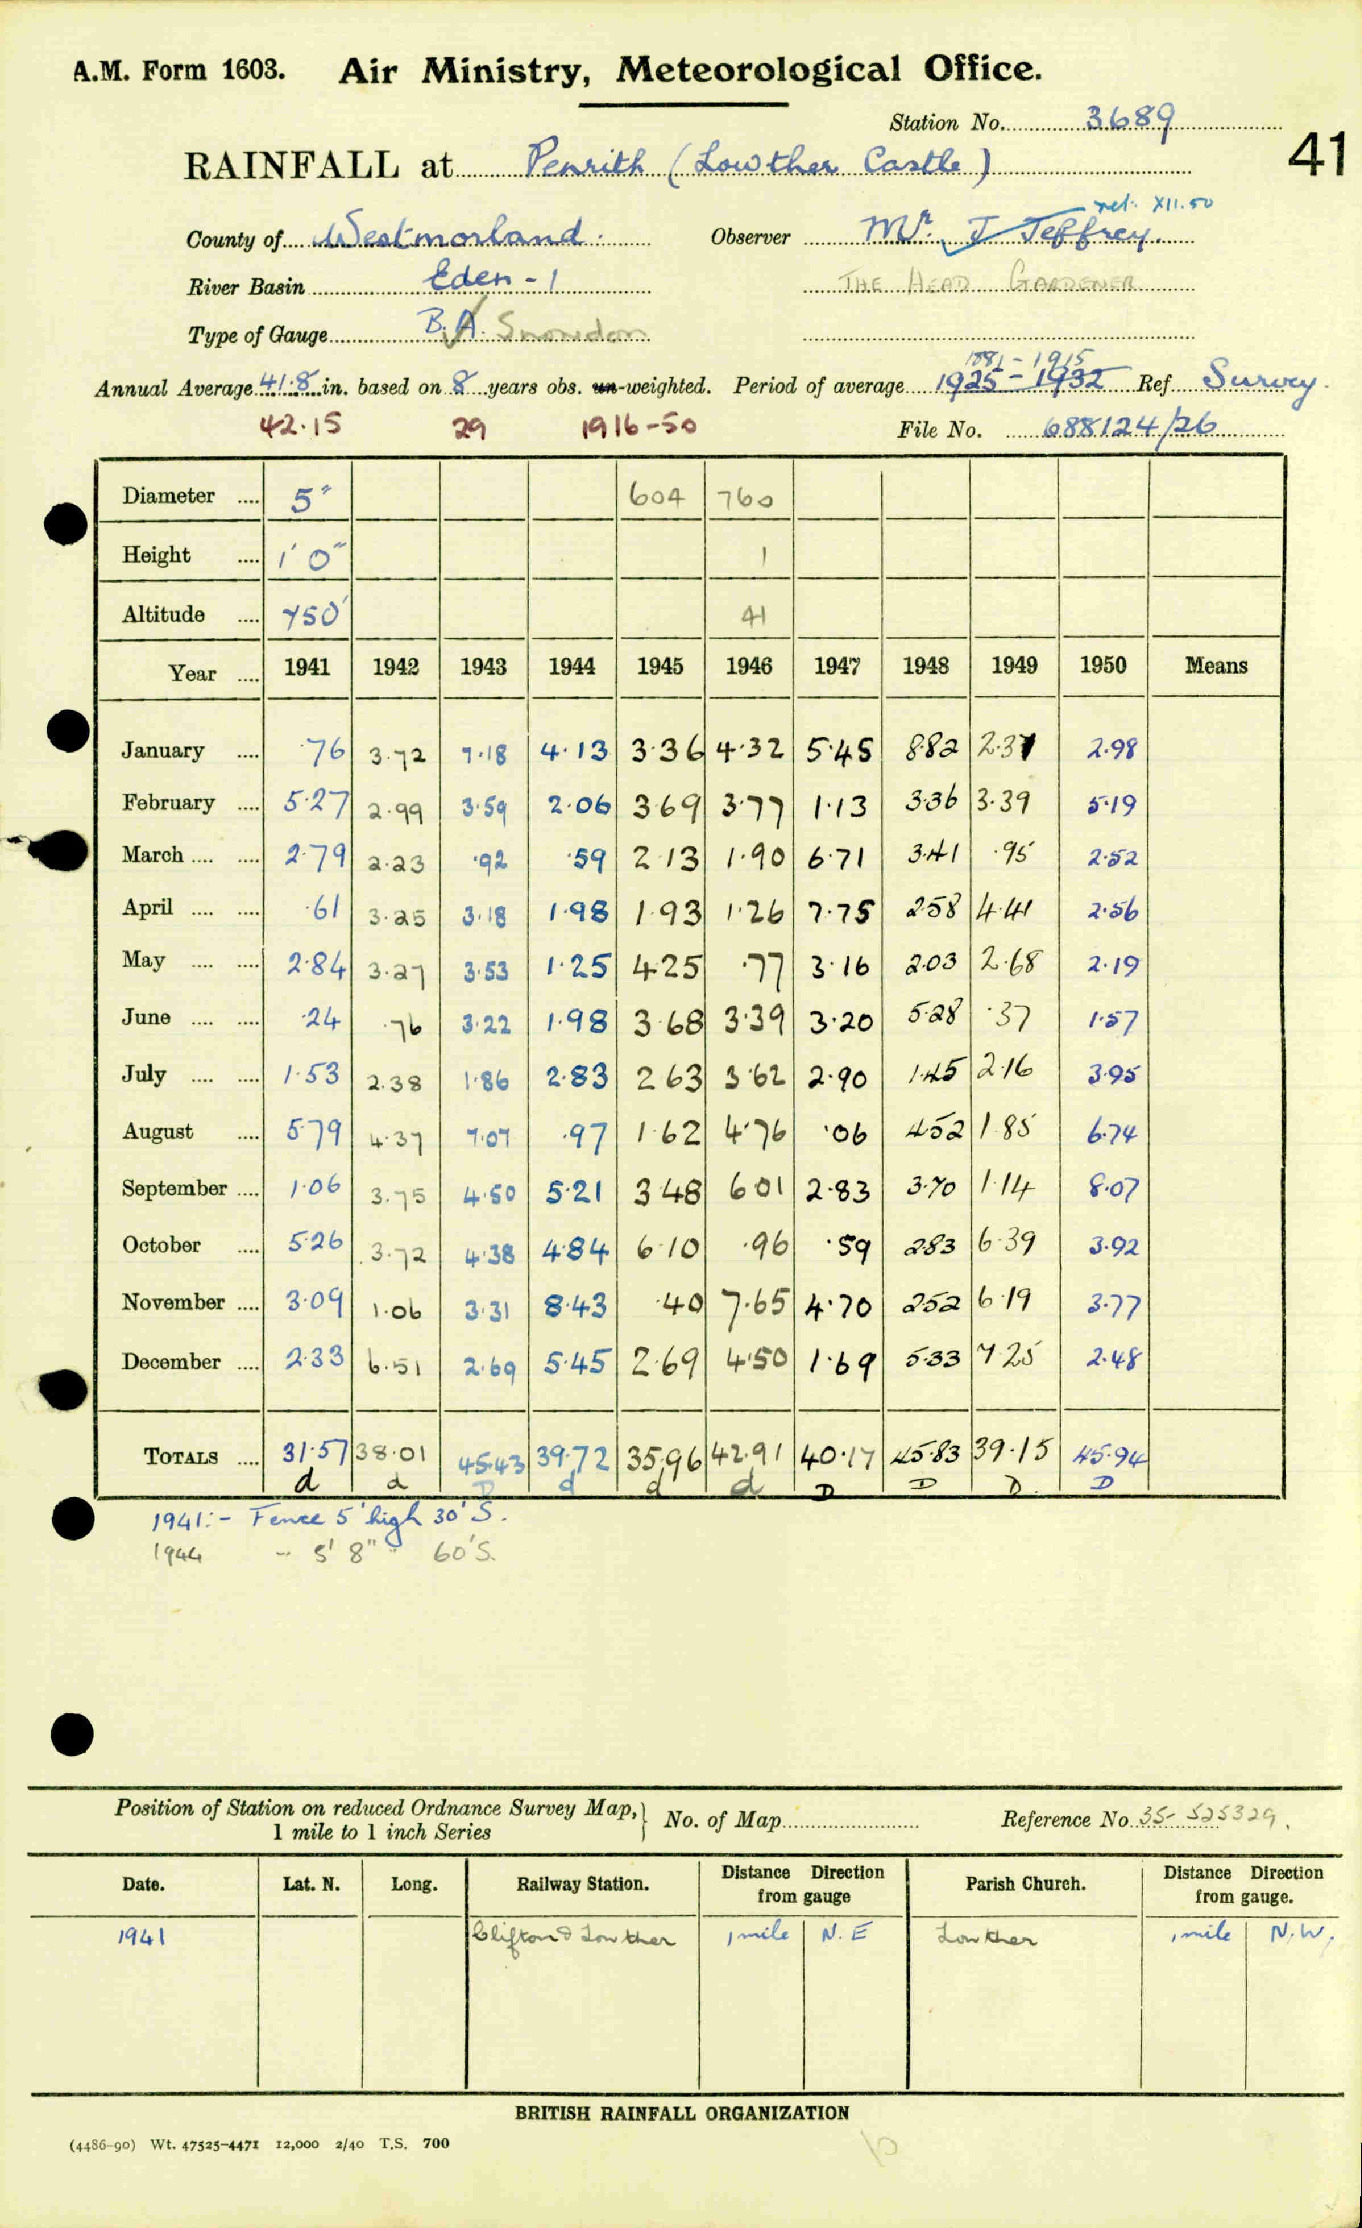 A.M. Form 1603. Air Ministry, Meteorological Office.
Station No. 3689
41
RAINFALL at Penrith (Lowther Castle)
ret. XII.50
County of Westmorland. Observer Mr. J Jeffrey.
River Basin Eden - 1 THE HEAD GARDENER
Type of Gauge B.A. Snowdon
1881 - 1915
Annual Average 41.8 in. based on 8 years obs. un-weighted. Period of average 1925 - 1932 Ref. Survey.
42.15 29 1916-50 File No. 688124/26
Diameter .... 5" 604 760
Height .... 1' 0" 1
Altitude .... 750' 41
Year .... 1941 1942 1943 1944 1945 1946 1947 1948 1949 1950 Means
January .... .76 3.72 7.18 4.13 3.36 4.32 5.45 8.82 2.37 2.98
February .... 5.27 2.99 3.59 2.06 3.69 3.77 1.13 3.36 3.39 5.19
March .... .... 2.79 2.23 .92 .59 2.13 1.90 6.71 3.41 .95 2.52
April .... .... .61 3.25 3.18 1.98 1.93 1.26 7.75 2.58 4.41 2.56
May .... .... 2.84 3.27 3.53 1.25 4.25 .77 3.16 2.03 2.68 2.19
June .... .... .24 .76 3.22 1.98 3.68 3.39 3.20 5.28 .37 1.57
July .... .... 1.53 2.38 1.86 2.83 2.63 3.62 2.90 1.45 2.16 3.95
August .... 5.79 4.37 7.07 .97 1.62 4.76 .06 4.52 1.85 6.74
September .... 1.06 3.75 4.50 5.21 3.48 6.01 2.83 3.70 1.14 8.07
October .... 5.26 3.72 4.38 4.84 6.10 .96 .59 2.83 6.39 3.92
November .... 3.09 1.06 3.31 8.43 .40 7.65 4.70 2.52 6.19 3.77
December .... 2.33 6.51 2.69 5.45 2.69 4.50 1.69 5.33 7.25 2.48
TOTALS .... 31.57 38.01 45.43 39.72 35.96 42.91 40.17 45.83 39.15 45.94
d d D d d d D D D. D
1941:- Fence 5' high 30' S.
1944 - 5' 8" " 60'S.
Position of Station on reduced Ordnance Survey Map, } No. of Map Reference No. 35- 525329.
1 mile to 1 inch Series
Date. Lat. N. Long. Railway Station. Distance Direction from gauge Parish Church. Distance Direction from gauge.
1941 Clifton & Lowther 1 mile N. E Lowther 1 mile N.W.
BRITISH RAINFALL ORGANIZATION
(4486-90) Wt. 47525-4471 12,000 2/40 T.S. 700